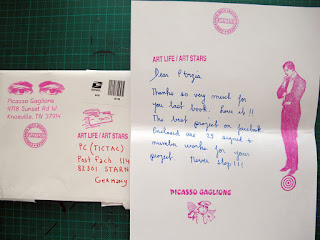 Picasso Gaglione
4718 Sunset Rd W
Knoxville, TN 37914
ART LIFE / ART STARS
PC (TICTAC)
Postfach 114
82301 STARN
Germany
ART LIFE / ART STARS
Dear
Thanks so very much for
you last book. Love it!!
The best project on facebook
Enclosed are 25 signed +
number works for your
project Never stop!!!
PICASSO GAGLIONE